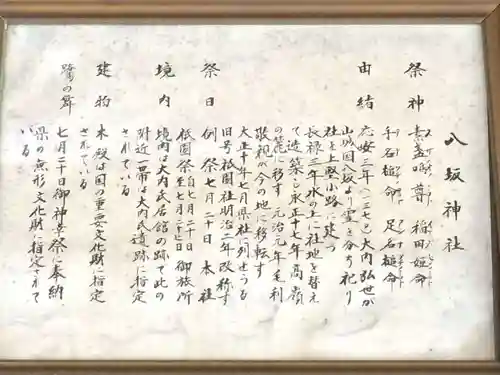 八坂神社
祭神 素盞嗚尊 稲田姫命
手名槌命 足名槌命
由緒 応安三年(一三七〇)大内弘世が
山城国八坂より霊を分ち祀り
社を上竪小路に建つ
長禄三年水の上に社地を替え
て造築し永正十七年高嶺
の麓に移す 元治元年毛利
敬親が今の地に移転す
大正十年七月県社に列せらる
旧号祇園社明治二年改称す
祭日 例祭七月二十日 本社
祇園祭自七月二十日御旅所
至七月二十七日
境内 境内は大内氏居館の跡で此の
附近一帯は大内氏遺跡に指定
されている
建物 本殿は国の重要文化財に指定
されている
鷺の舞 七月二十日御神幸祭に奉納
県の無形文化財に指定されて
いる